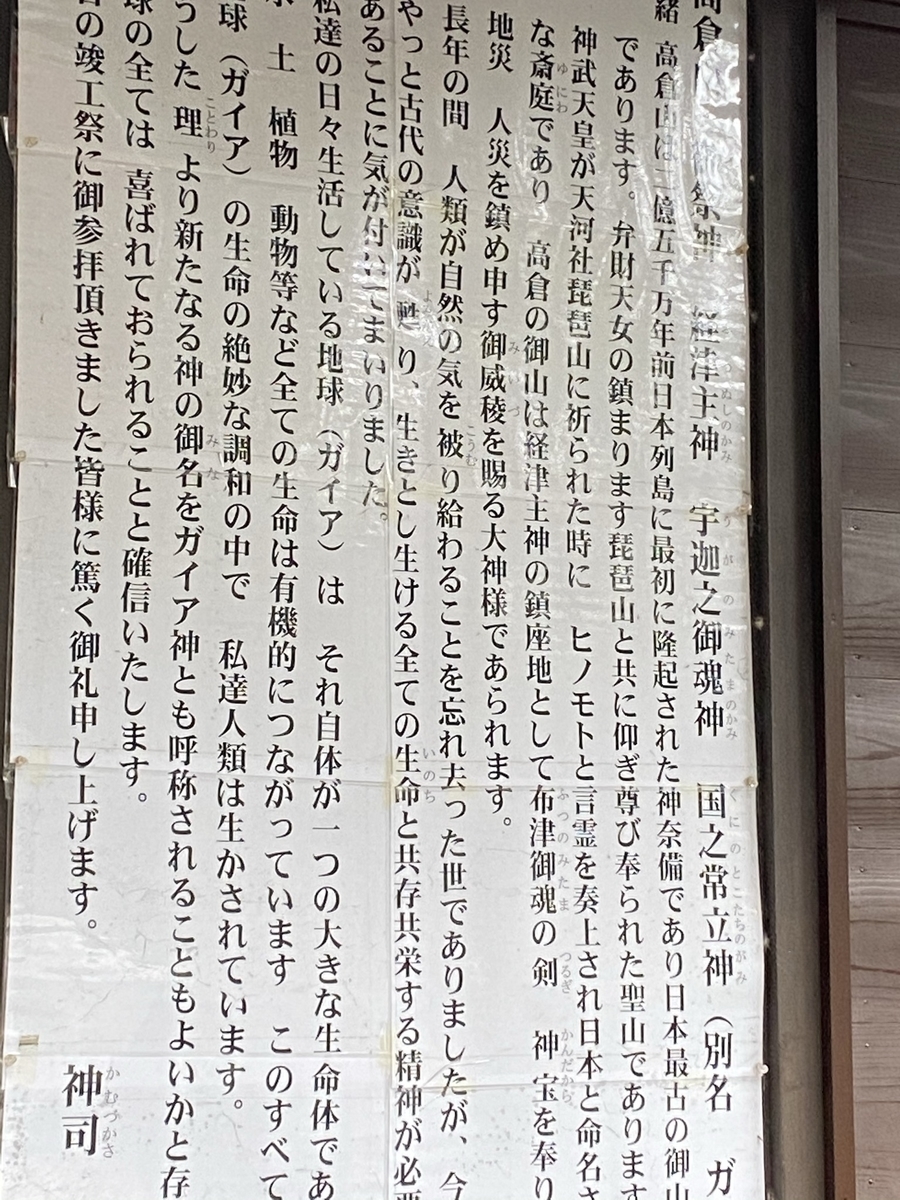 高倉 御祭神 経津主神 宇迦之御魂神 国之常立神（別名 ガ
緒 高倉山は二億五千万年前日本列島に最初に隆起された神奈備であり日本最古の御山
であります。弁財天女の鎮まります琵琶山と共に仰ぎ尊び奉られた聖山であります
神武天皇が天河社琵琶山に祈られた時に ヒノモトと言霊を奏上され日本と命名さ
な斎庭であり 高倉の御山は経津主神の鎮座地として布津御魂の剣 神宝を奉り
地災 人災を鎮め申す御威稜を賜る大神様であられます。
長年の間 人類が自然の気を被り給わることを忘れ去った世でありましたが、今
やっと古代の意識が甦り、生きとし生ける全ての生命と共存共栄する精神が必要
あることに気が付いてまいりました。
私達の日々生活している地球（ガイア）は それ自体が一つの大きな生命体であ
水 土 植物 動物等など全ての生命は有機的につながっています このすべて
球（ガイア）の生命の絶妙な調和の中で 私達人類は生かされています。
つした理より新たなる神の御名をガイア神とも呼称されることもよいかと存
球の全ては 喜ばれておられることと確信いたします。
の竣工祭に御参拝頂きました皆様に篤く御礼申し上げます。
神司